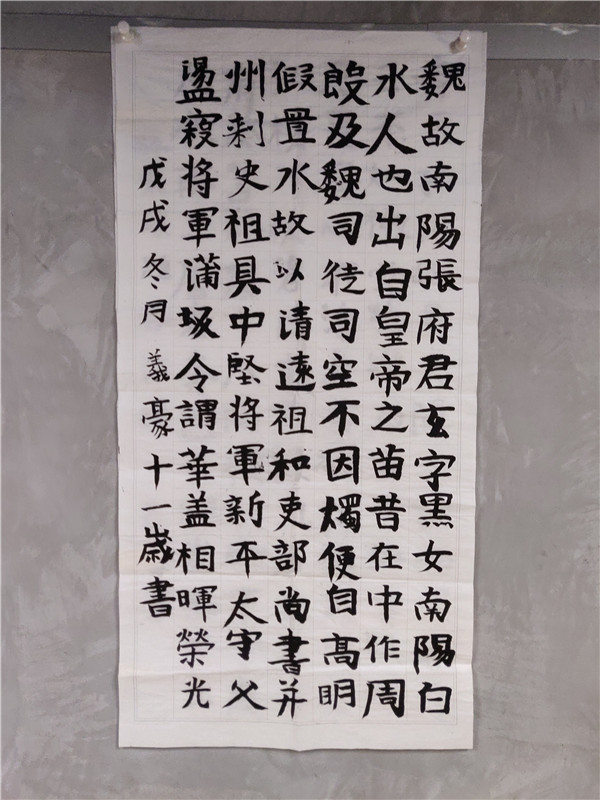 魏故南陽張府君玄字黑女南陽白
水人也出自皇帝之苗昔在中作周
殷及魏司徒司空不因燭便自髙明
假置水故以清遠祖和吏部尚書并
州刺史祖具中堅将軍新平太守父
盪寇将軍蒲坂令謂華盖相暉榮光
戊戌冬月羲豪十一歲書